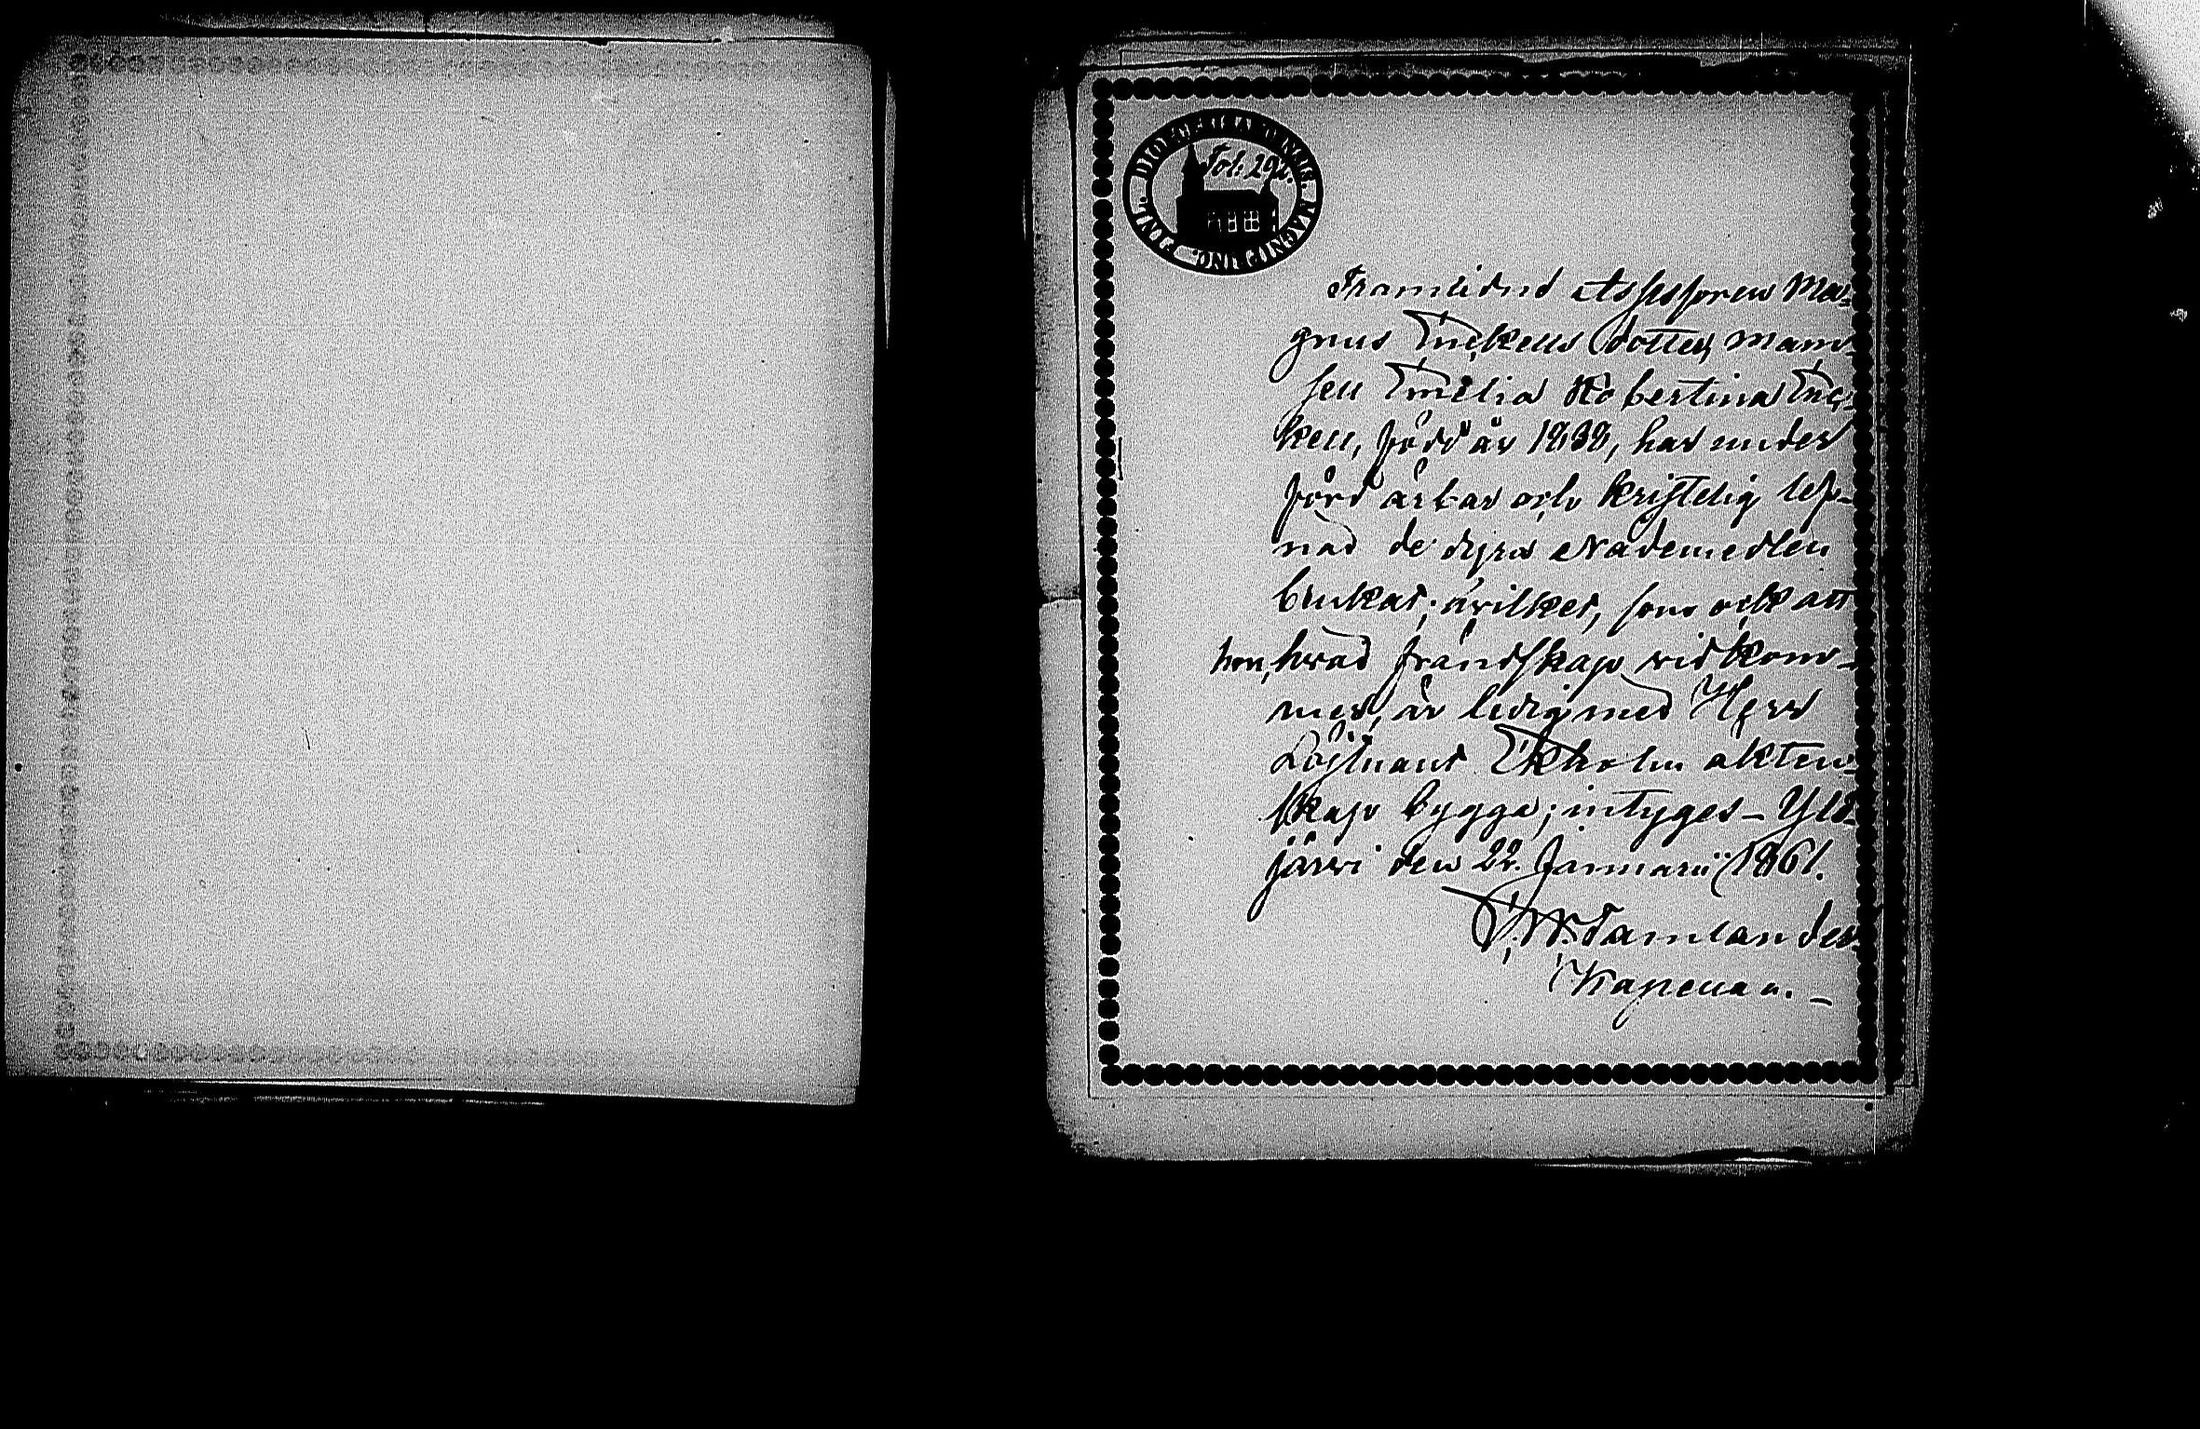 Fol: 292.
Framlidne Assessoren Ma-
gnus Enckells dotter, mam-
sell Emelia Robertina Enc-
kell, född år 1838, har under
förd ärbar och kristelig lef-
nad de dyra Nademedlen
brukat; hvilket, som ock att
hon, hvad frändskap vidkom-
mer, är ledig med Herr
Löjtnant Ekholm äkten-
skap bygga; intyges – Ylö-
järvi den 22. Januarii 1861.
Tamlander
Kapellan. –